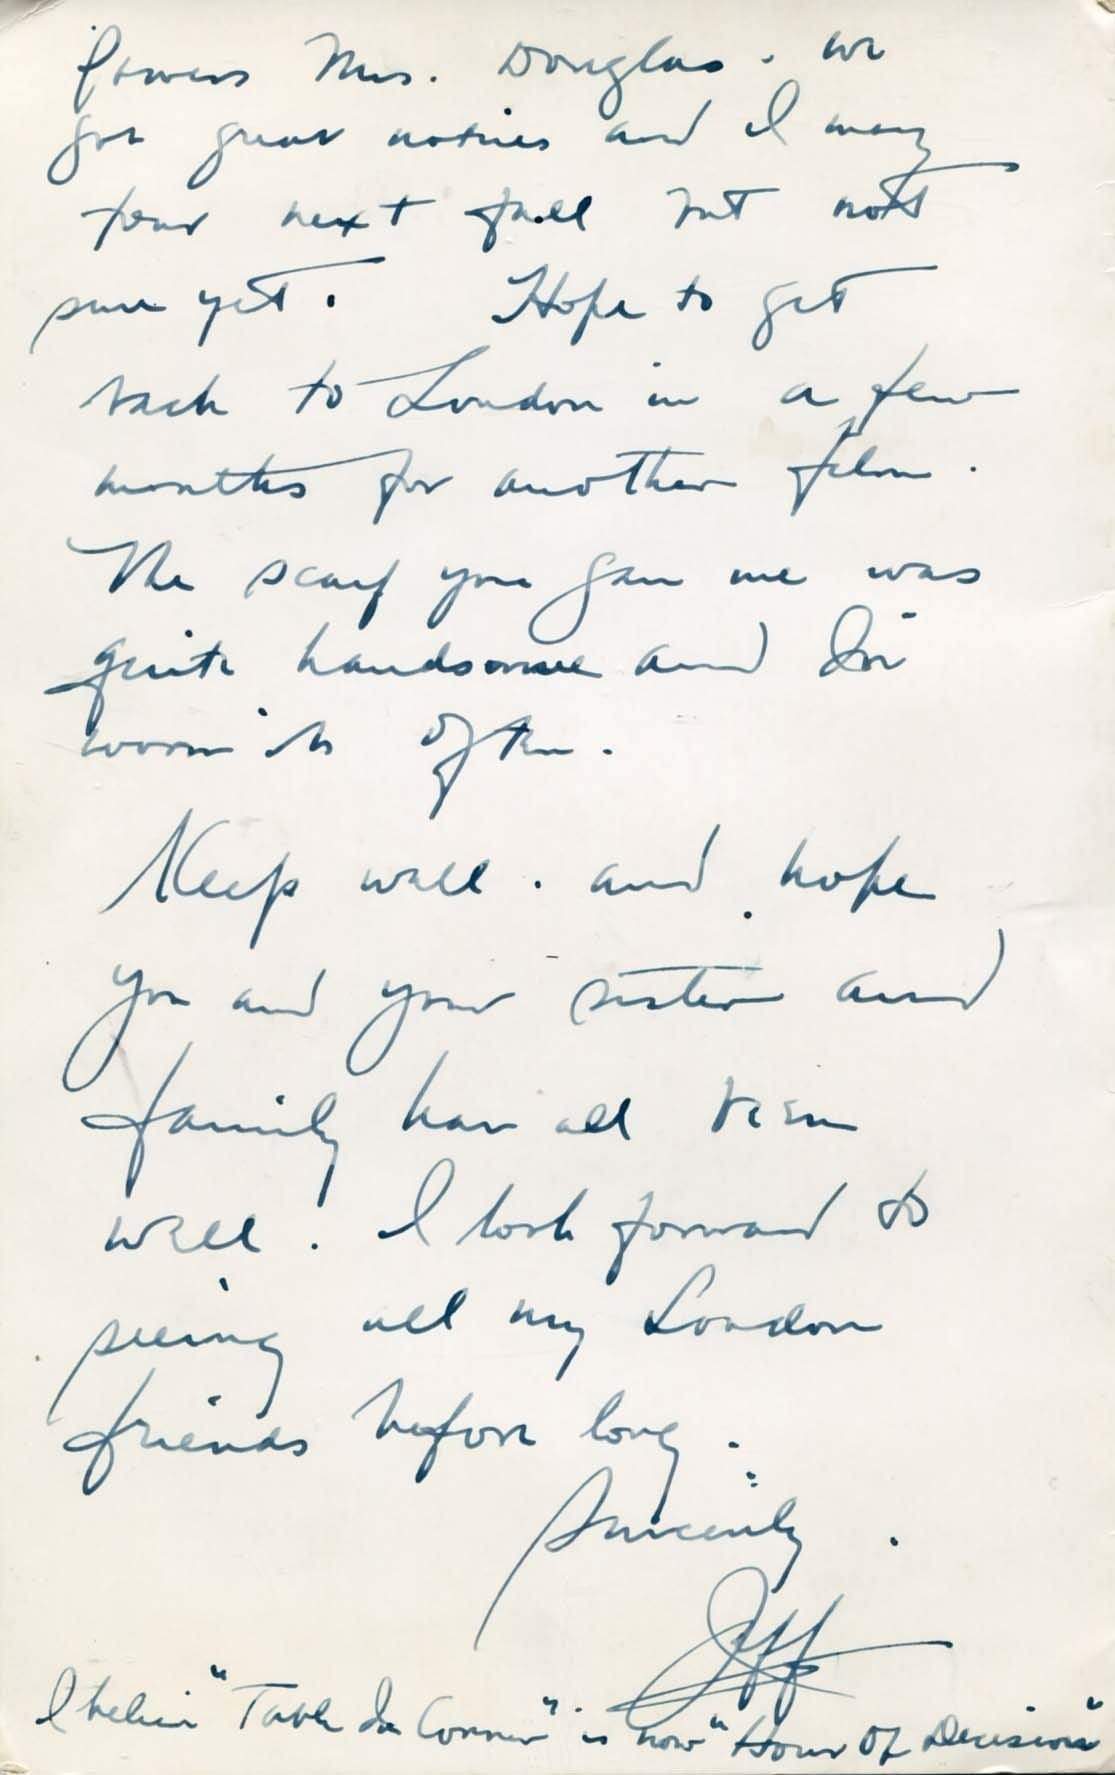 Powers Mrs. Douglas. We
got great notices and I may
tour next fall but not
sure yet. Hope to get
back to London in a few
months for another film.
The scarf you gave me was
quite handsome and I've
worn it often.
Keep well. and hope
you and your sister and
family have all been
well. I look forward to
seeing all my London
friends before long.
Sincerely.
Jeff
I believe "Table In Corner". is now "Hour Of Decision"